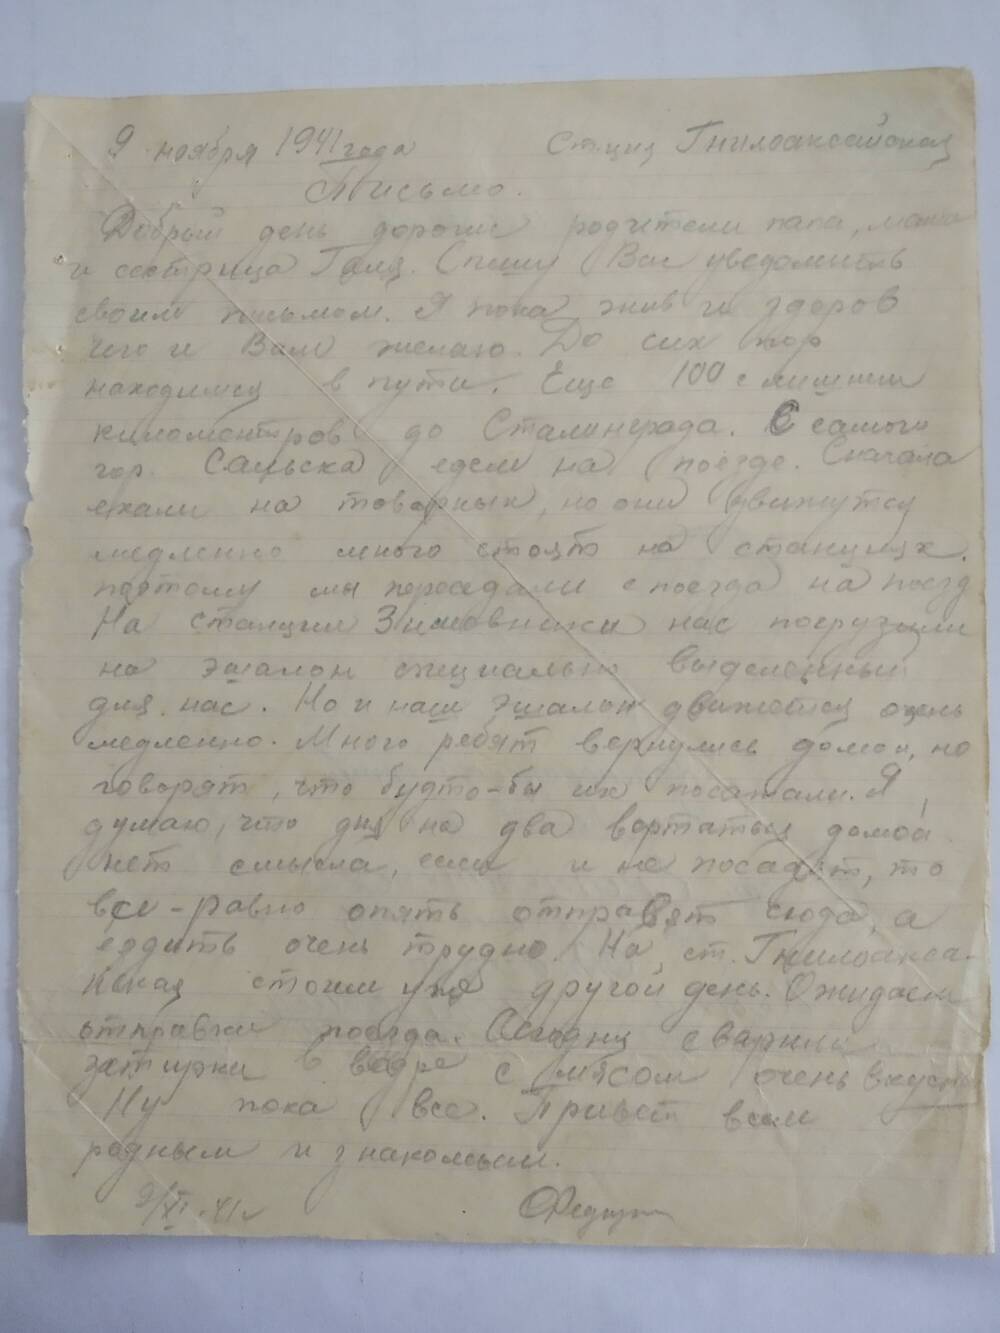 9 ноября 1941 года Ст-ция Гнилоаксайская
Письмо.
Добрый день дорогие родители папа, мама
и сестрица Галя. Спешу Вас уведомить
своим письмом. Я пока жив и здоров
чего и Вам желаю. До сих пор
находимся в пути. Еще 100 с лишним
киломонтров до Сталинграда. С самого
гор. Сальска едем на поезде. Сначала
ехали на товарных, но они движутся
медленно много стоят на станциях.
поэтому мы переседали с поезда на поезд
На станции Зимовники нас погрузили
на эшалон специально выделенный
для нас. Но и наш эшалон движется очень
медленно. Много ребят вернулись домой, но
говорят, что будто-бы их посажали. Я
думаю, что дня на два вертаться домой
нет смысла, если и не посадят, то
все-равно опять отправят сюда, а
ездить очень трудно. На ст. Гнилоакса-
йская стоим уже другой день. Ожидаем
отправки поезда. Сегодня сварили
затирки в ведре с мясом очень вкусно
Ну пока все. Привет всем
родным и знакомым.
9/XI-41г